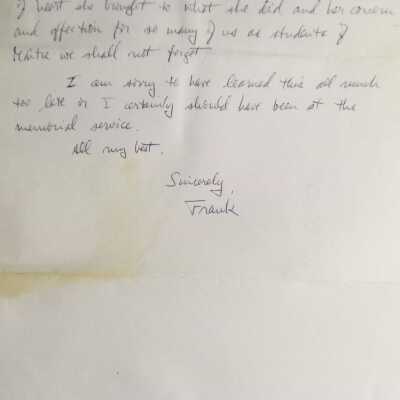 of heart she brought to what she did and her concern
and affection for so many of us as students of
Maitre we shall not forget
I am sorry to have learned this all much
too late or I certainly should have been at the
memorial service.
All my best.
Sincerely,
Frank